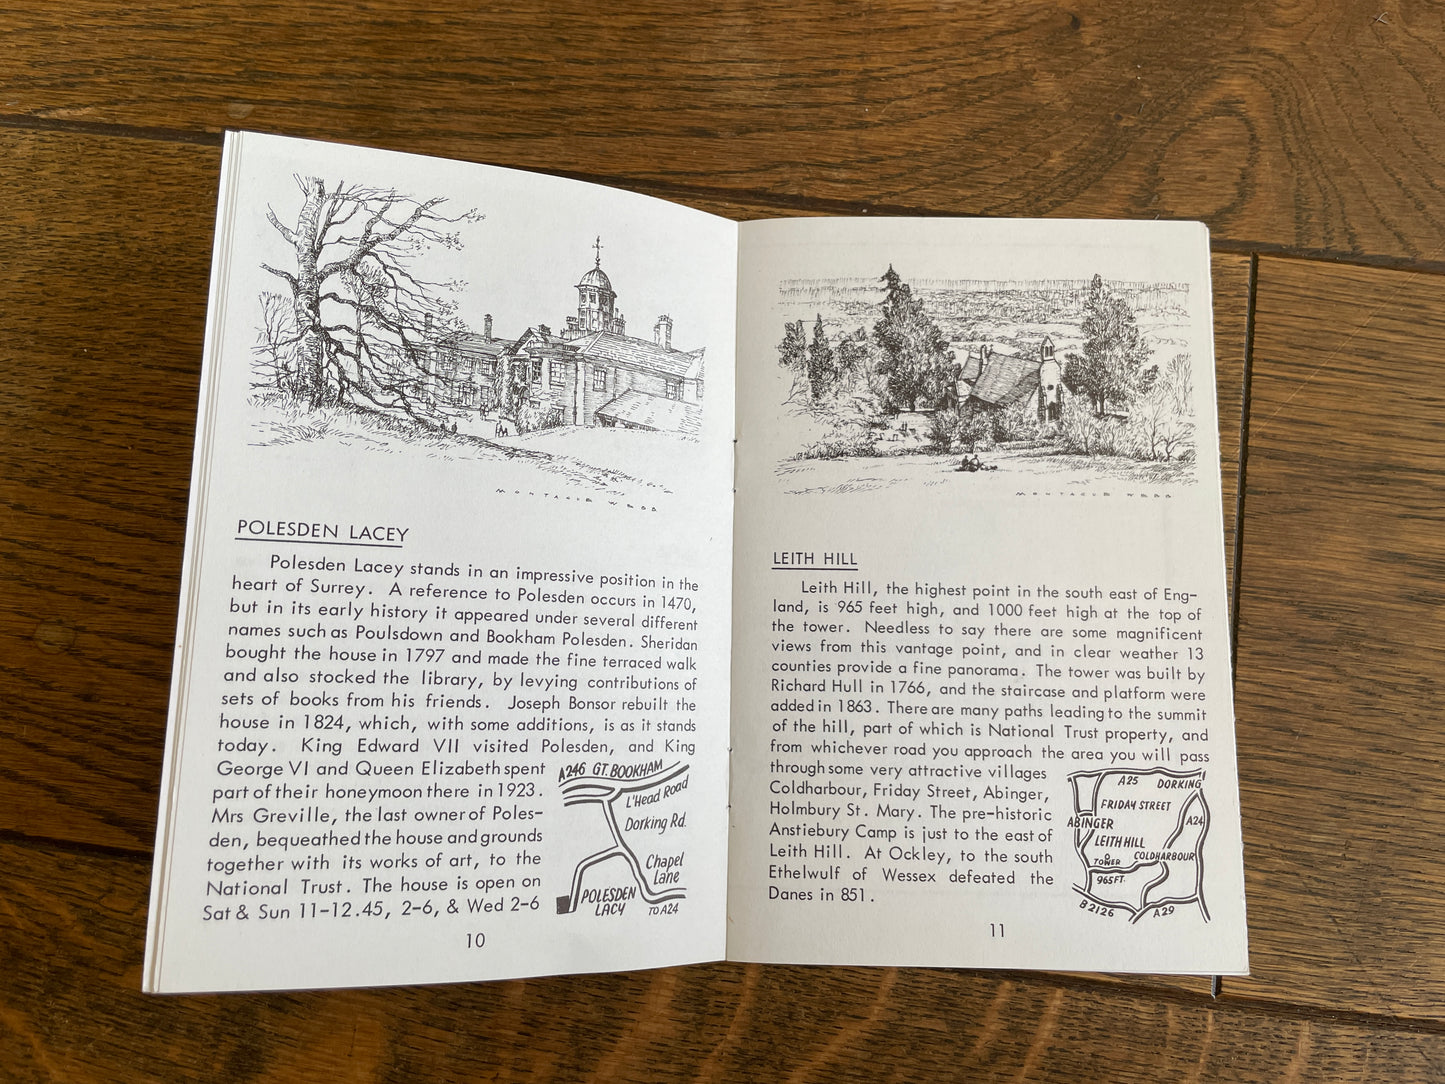 MONTAGUE WEBB
POLESDEN LACEY
Polesden Lacey stands in an impressive position in the
heart of Surrey. A reference to Polesden occurs in 1470,
but in its early history it appeared under several different
names such as Poulsdown and Bookham Polesden. Sheridan
bought the house in 1797 and made the fine terraced walk
and also stocked the library, by levying contributions of
sets of books from his friends. Joseph Bonsor rebuilt the
house in 1824, which, with some additions, is as it stands
today. King Edward VII visited Polesden, and King
George VI and Queen Elizabeth spent
part of their honeymoon there in 1923.
Mrs Greville, the last owner of Poles-
den, bequeathed the house and grounds
together with its works of art, to the
National Trust. The house is open on
Sat & Sun 11-12.45, 2-6, & Wed 2-6
A246 GT. BOOKHAM
L'Head Road
Dorking Rd.
Chapel
Lane
POLESDEN
LACY
TO A24
10
MONTAGUE WEBB
LEITH HILL
Leith Hill, the highest point in the south east of Eng-
land, is 965 feet high, and 1000 feet high at the top of
the tower. Needless to say there are some magnificent
views from this vantage point, and in clear weather 13
counties provide a fine panorama. The tower was built by
Richard Hull in 1766, and the staircase and platform were
added in 1863. There are many paths leading to the summit
of the hill, part of which is National Trust property, and
from whichever road you approach the area you will pass
through some very attractive villages
Coldharbour, Friday Street, Abinger,
Holmbury St. Mary. The pre-historic
Anstiebury Camp is just to the east of
Leith Hill. At Ockley, to the south
Ethelwulf of Wessex defeated the
Danes in 851.
A25 DORKING
FRIDAY STREET
A24
ABINGER
LEITH HILL
TOWER
COLDHARBOUR
965 FT.
B2126
A29
11